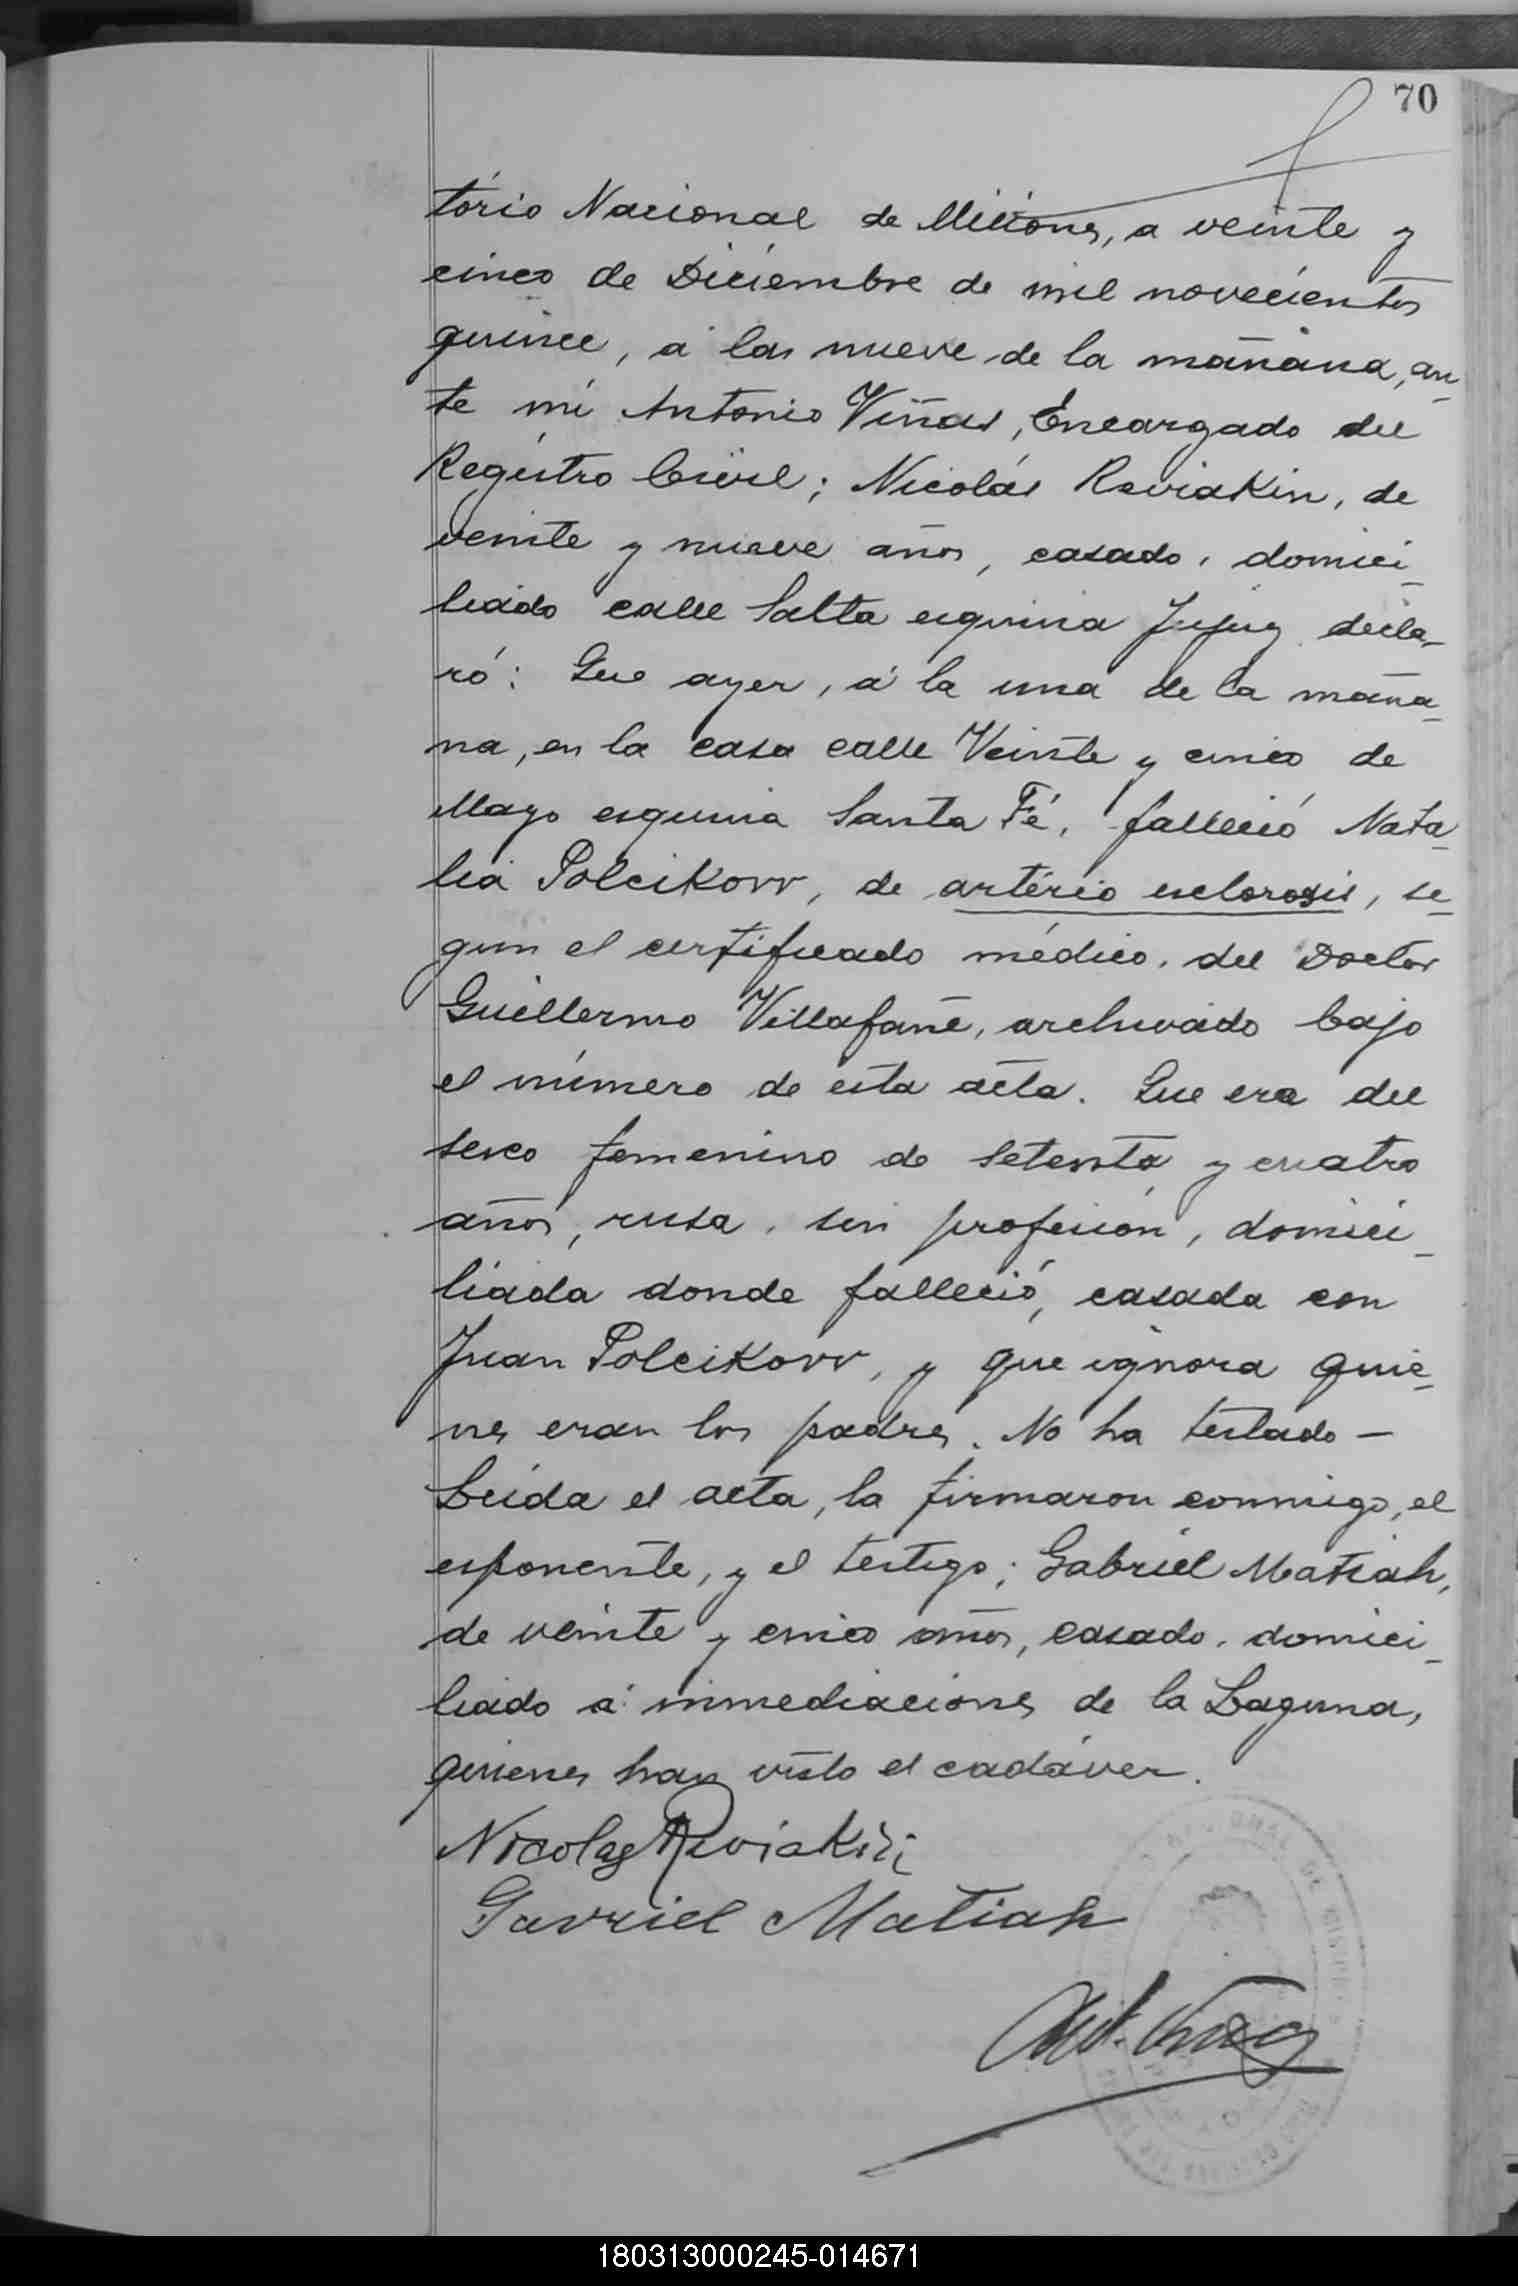 70
tório Nacional de Misiones, a veinte y
cinco de Diciembre de mil novecientos
quince, á las nueve de la mañana, an_
te mí Antonio Viñas, Encargado del
Registro Civil; Nicolás Reviakin, de
veinte y nueve años, casado, domici_
liado calle Salta esquina Jujuy decla_
ró: Que ayer, á la una de la maña_
na, en la casa calle Veinte y cinco de
Mayo esquina Santa Fé, falleció Nata_
lia Polcikovv, de artério esclorosis, se_
gun el certificado médico, del Doctor
Guillermo Villafañe, archivado bajo
el número de esta acta. Que era del
sexo femenino de setenta y cuatro
años, rusa, sin profesión, domici_
liada donde falleció, casada con
Juan Polcikovv, y que ignora quie_
nes eran los padres. No ha testado —
Leida el acta, la firmaron conmigo, el
esponente, y el testigo; Gabriel Matiah,
de veinte y cinco años, casado, domici_
liado á inmediaciones de la Laguna,
quienes han visto el cadáver.
Nicolas Reviakin
Gavriel Matiah
Ant. Viñas
180313000245-014671